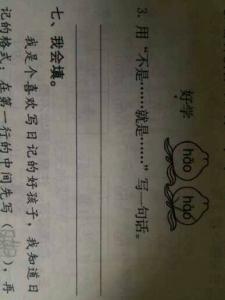 好学 hǎo hào
3. 用“不是……就是……”写一句话。
七、我会填。
我是个喜欢写日记的好孩子，我知道日
记的格式：在第一行的中间先写（ ），再